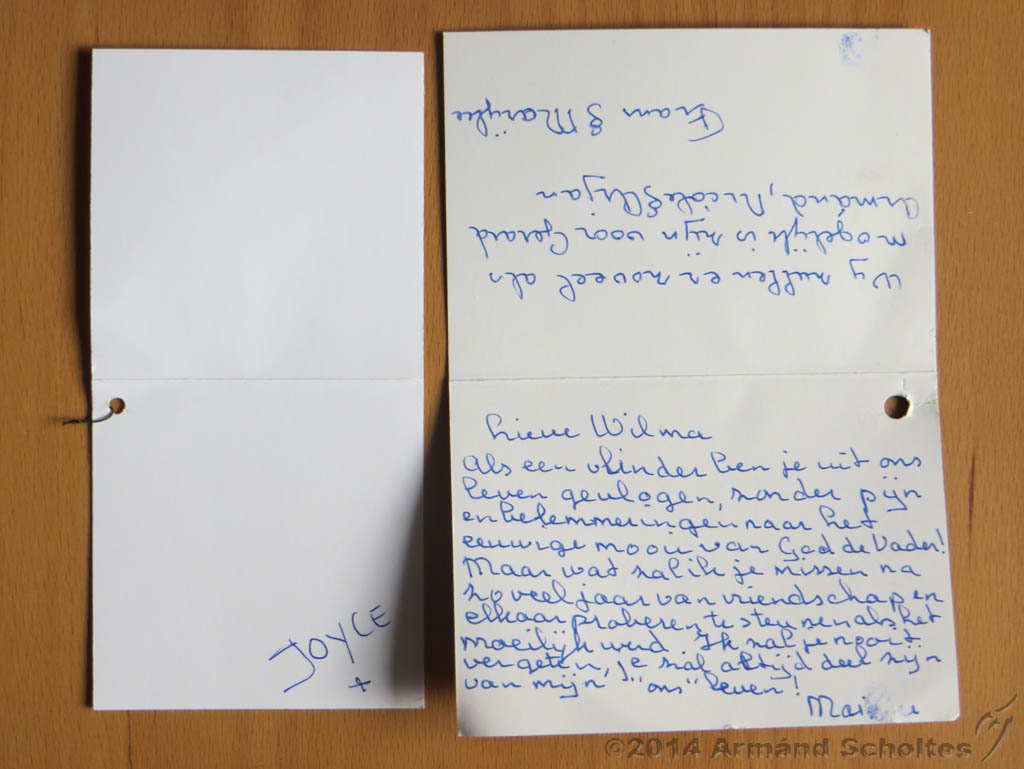 JOYCE
+
Wy zullen er zoveel als
mogelijk is zijn voor Gerard
Armánd, Nicole & Arjan
Frans & Marijke
Lieve Wilma
Als een vlinder ben je uit ons
leven gevlogen, zonder pijn
en belemmeringen naar het
eeuwige mooi van God de Vader!
Maar wat zal ik je missen na
zoveel jaar van vriendschap en
elkaar proberen te steunen als het
moeilijk werd. Ik zal je nooit
vergeten, je zal altijd deel zijn
van mijn "ons" leven!
©2014 Armánd Scholtes